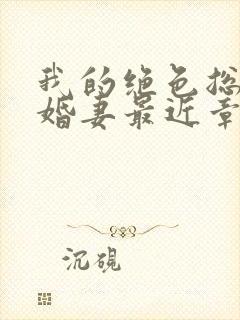 我的绝色总
婚妻最近章
沉砚